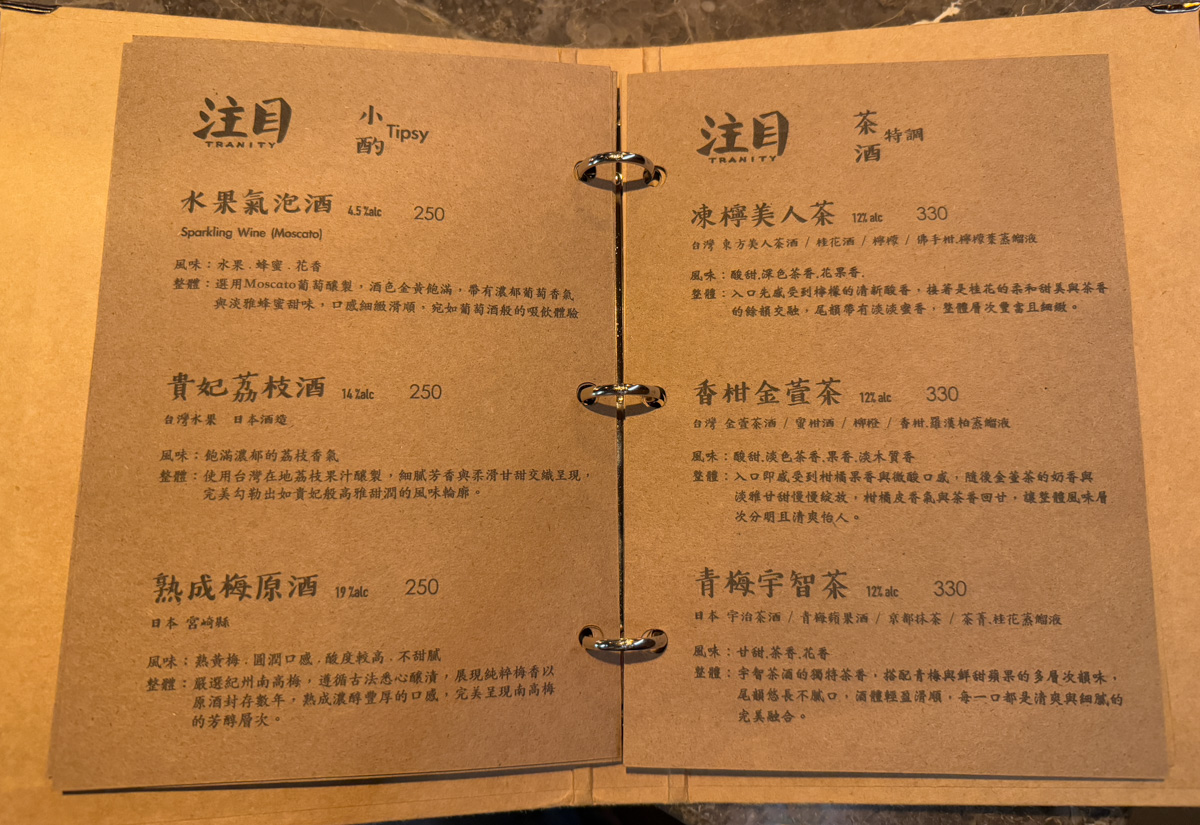 注目
TRANITY
小酌 Tipsy
水果氣泡酒 4.5%alc 250
Sparkling Wine (Moscato)
風味：水果．蜂蜜．花香
整體：選用Moscato葡萄釀製，酒色金黃飽滿，帶有濃郁葡萄香氣
與淡雅蜂蜜甜味，口感細緻滑順，宛如葡萄酒般的啜飲體驗
貴妃荔枝酒 14%alc 250
台灣水果 日本酒造
風味：飽滿濃郁的荔枝香氣
整體：使用台灣在地荔枝果汁釀製，細膩芳香與柔滑甘甜交織呈現，
完美勾勒出如貴妃般高雅甜潤的風味輪廓。
熟成梅原酒 19%alc 250
日本 宮崎縣
風味：熟黃梅．圓潤口感．酸度較高．不甜膩
整體：嚴選紀州南高梅，遵循古法悉心釀漬，展現純粹梅香以
原酒封存數年，熟成濃醇豐厚的口感，完美呈現南高梅
的芳醇層次。
注目
TRANITY
茶酒 特調
凍檸美人茶 12%alc 330
台灣 東方美人茶酒 / 桂花酒 / 檸檬 / 佛手柑.檸檬葉蒸餾液
風味：酸甜.深色茶香.花果香.
整體：入口先感受到檸檬的清新酸香，接著是桂花的柔和甜美與茶香
的餘韻交融，尾韻帶有淡淡蜜香，整體層次豐富且細緻。
香柑金萱茶 12%alc 330
台灣 金萱茶酒 / 蜜柑酒 / 柳橙 / 香柑.羅漢柏蒸餾液
風味：酸甜.淡色茶香.果香.淡木質香
整體：入口即感受到柑橘果香與微酸口感，隨後金萱茶的奶香與
淡雅甘甜慢慢綻放，柑橘皮香氣與茶香回甘，讓整體風味層
次分明且清爽怡人。
青梅宇智茶 12%alc 330
日本 宇治茶酒 / 青梅蘋果酒 / 京都抹茶 / 茶菁.桂花蒸餾液
風味：甘甜.茶香.花香
整體：宇智茶酒的獨特茶香，搭配青梅與鮮甜蘋果的多層次韻味，
尾韻悠長不膩口，酒體輕盈滑順，每一口都是清爽與細膩的
完美融合。